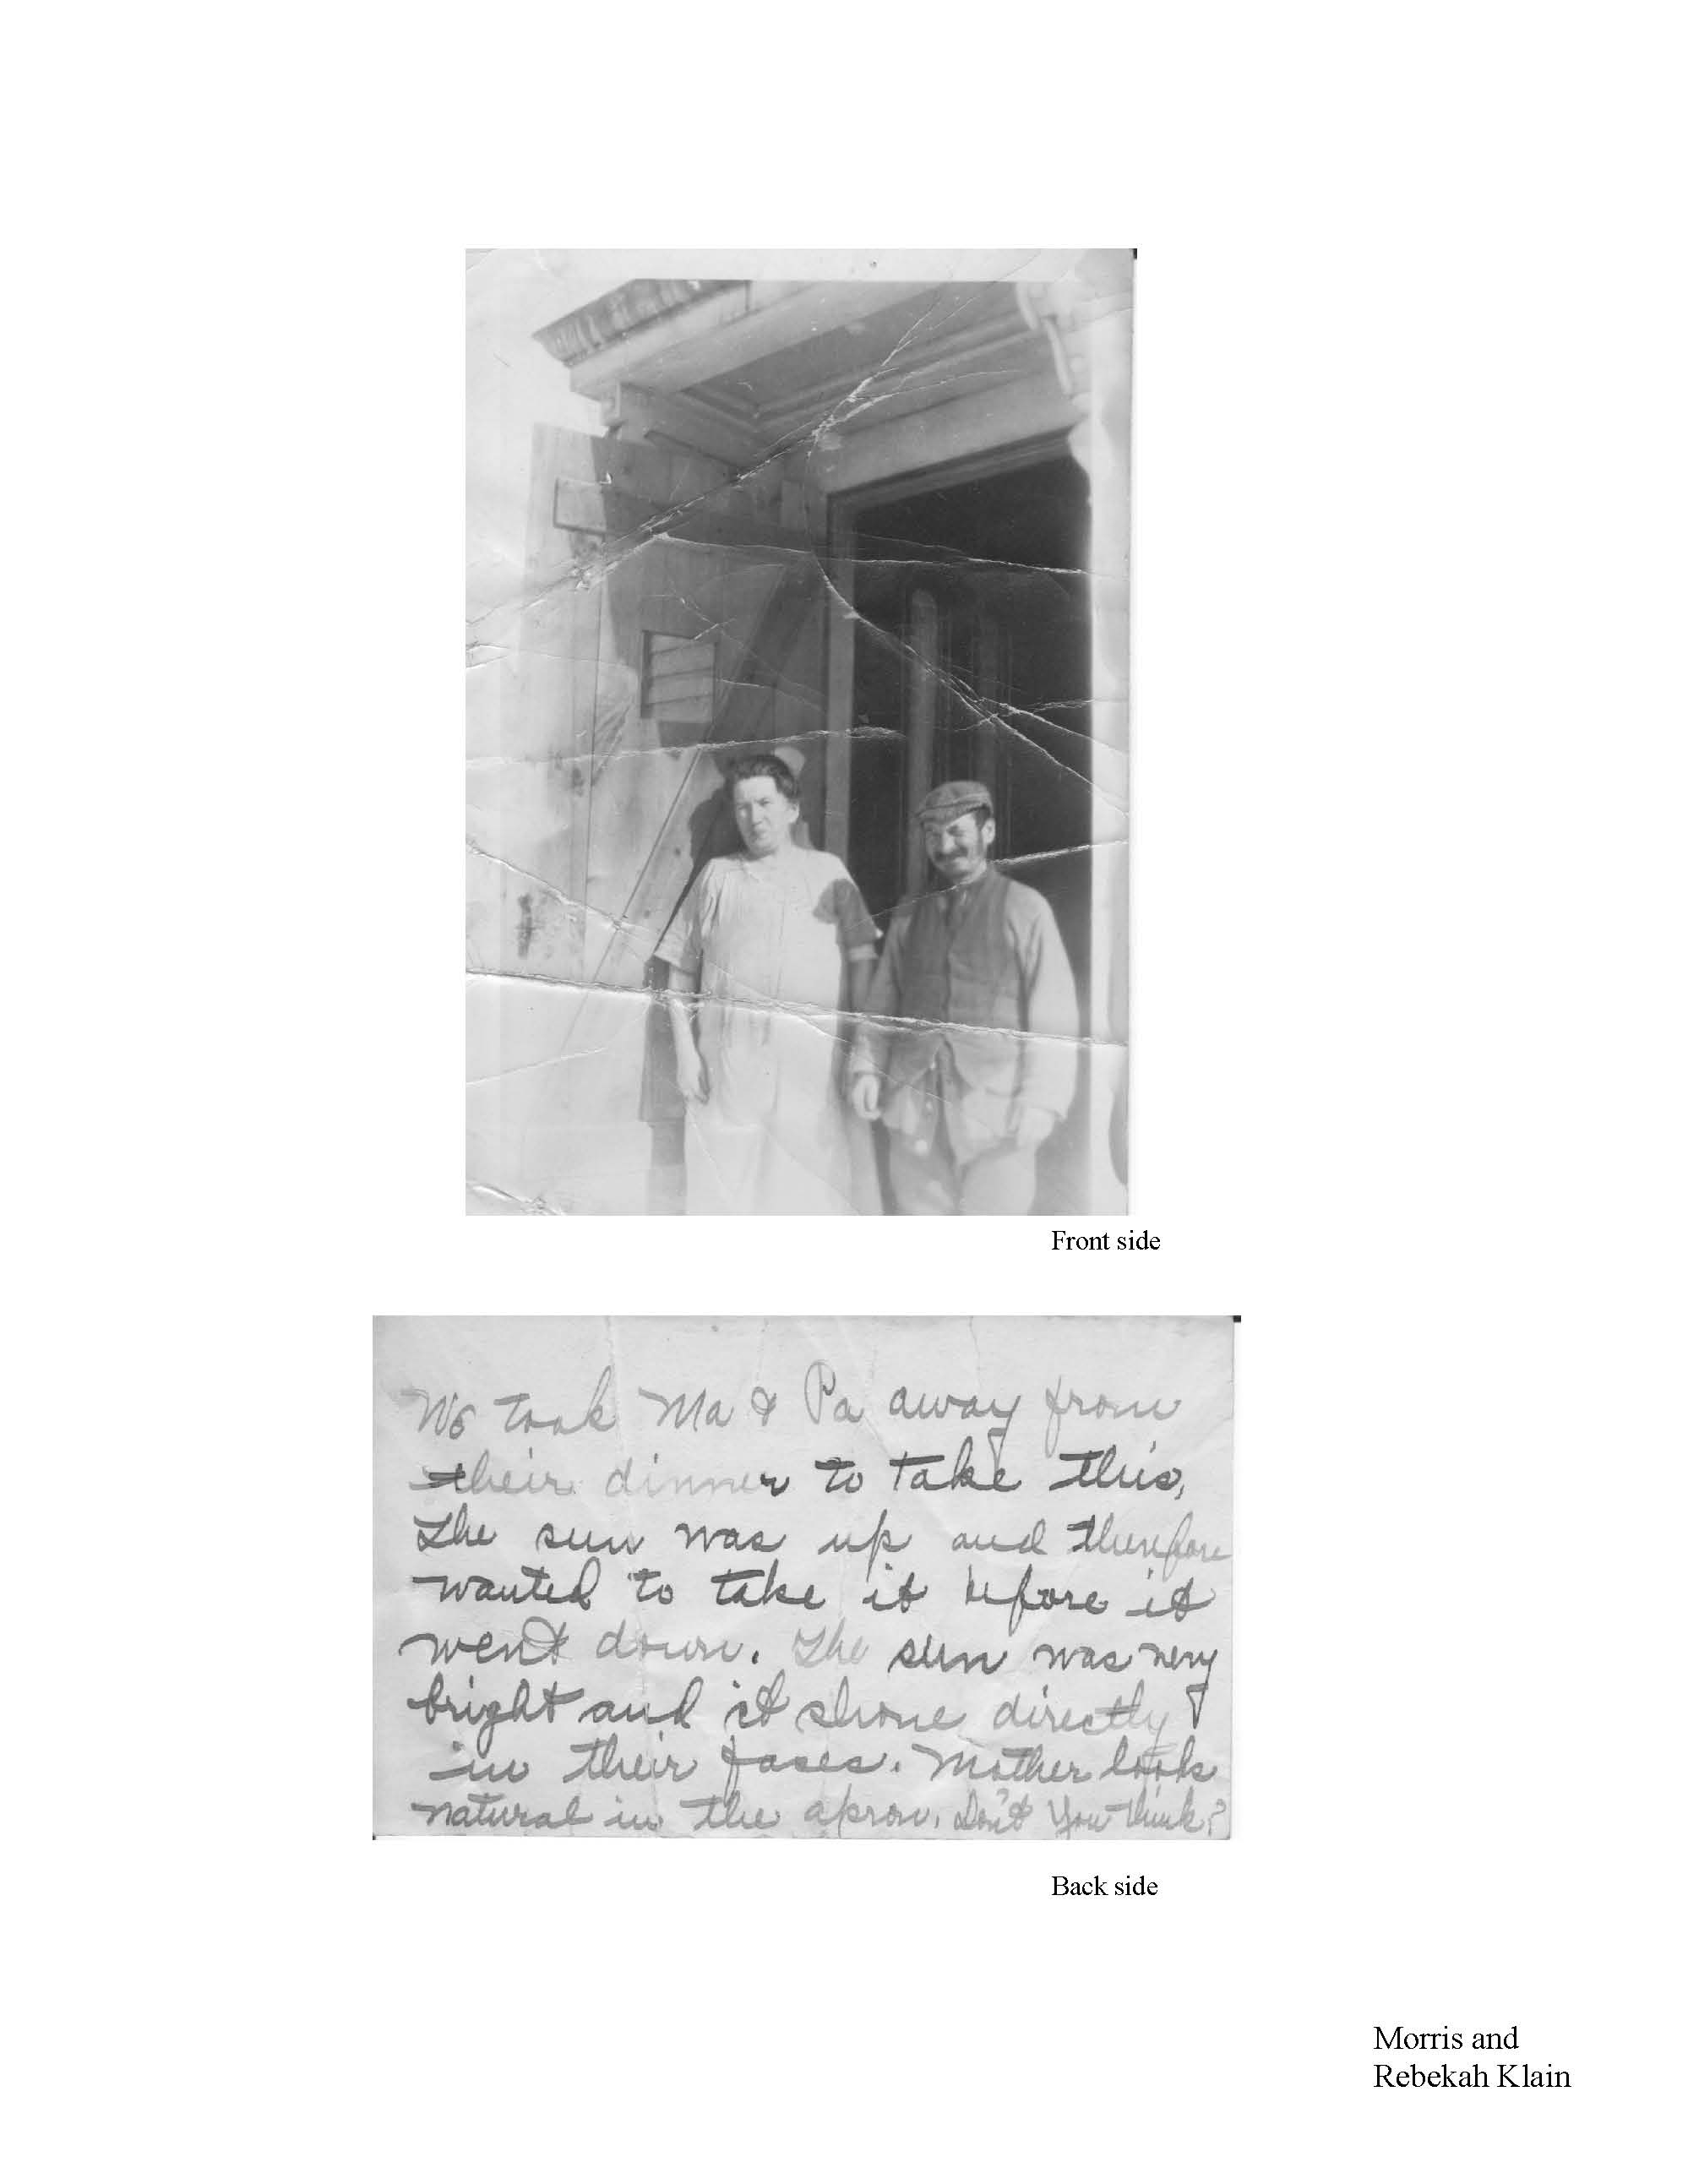 Front side
We took Ma & Pa away from
their dinner to take this,
The sun was up and therefore
wanted to take it before it
went down. The sun was very
bright and it shone directly
in their faces. Mother looks
natural in the apron. Don't You think?
Back side
Morris and
Rebekah Klain